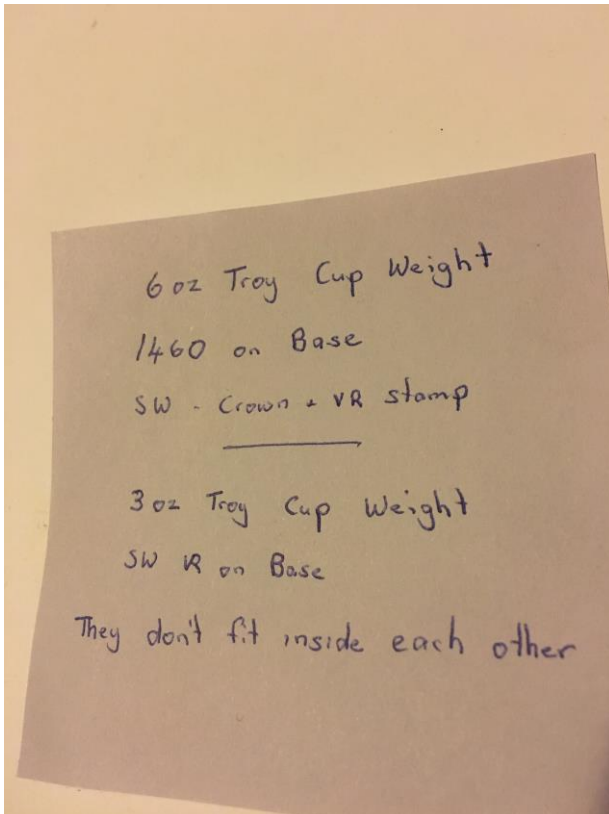 6 oz Troy Cup Weight
1460 on Base
SW - Crown + VR stamp
3 oz Troy Cup Weight
SW VR on Base
They don't fit inside each other